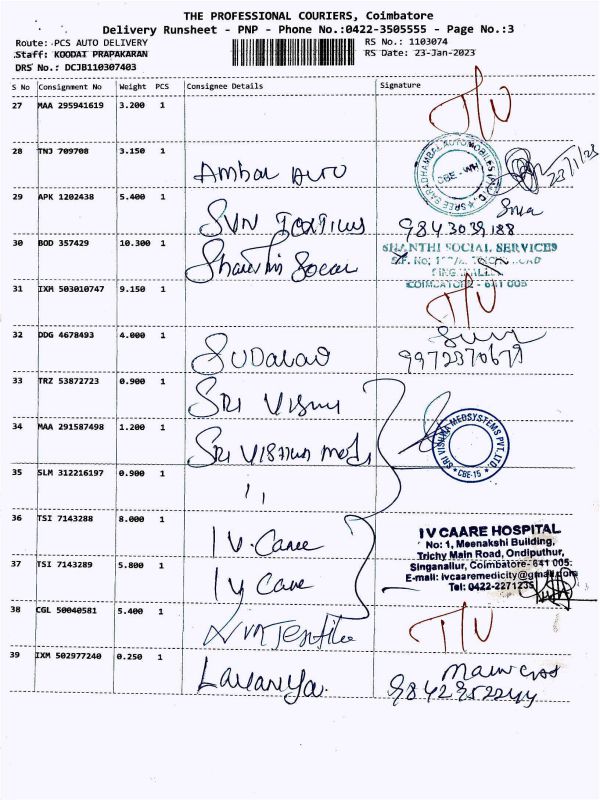 THE PROFESSIONAL COURIERS, Coimbatore
Delivery Runsheet - PNP - Phone No.:0422-3505555 - Page No.:3
Route: PCS AUTO DELIVERY
RS No.: 1103074
Staff: KOODAI PRAPAKARAN
RS Date: 23-Jan-2023
DRS No.: DCJB110307403
S No Consignment No Weight PCS Consignee Details Signature
27 MAA 295941619 3.200 1
28 TNJ 709708 3.150 1 Ambal Auto
SREE SARADHAMBAL AUTOMOBILES CBE-WH 23/1/23
29 APK 1202438 5.400 1 SVN 9843039188
30 BOD 357429 10.300 1 Shanthi Social
SHANTHI SOCIAL SERVICES
COIMBATORE - 641 005
31 IXM 503010747 9.150 1
32 DDG 4678493 4.000 1
33 TRZ 53872723 0.900 1 SRI Vishnu
34 MAA 291587498 1.200 1 SRI Vishnu Meds
SRI VISHNU MEDSYSTEMS PVT. LTD. CBE-15
35 SLM 312216197 0.900 1 ,,
36 TSI 7143288 8.000 1 IV. Caree
IV CAARE HOSPITAL
No: 1, Meenakshi Building,
Trichy Main Road, Ondiputhur,
Singanallur, Coimbatore- 641 005.
E-mail: ivcaaremedicity@gmail.com
Tel: 0422-2271235
37 TSI 7143289 5.800 1 IV Care
38 CGL 50040581 5.400 1
39 IXM 502977240 0.250 1 Lavanya.